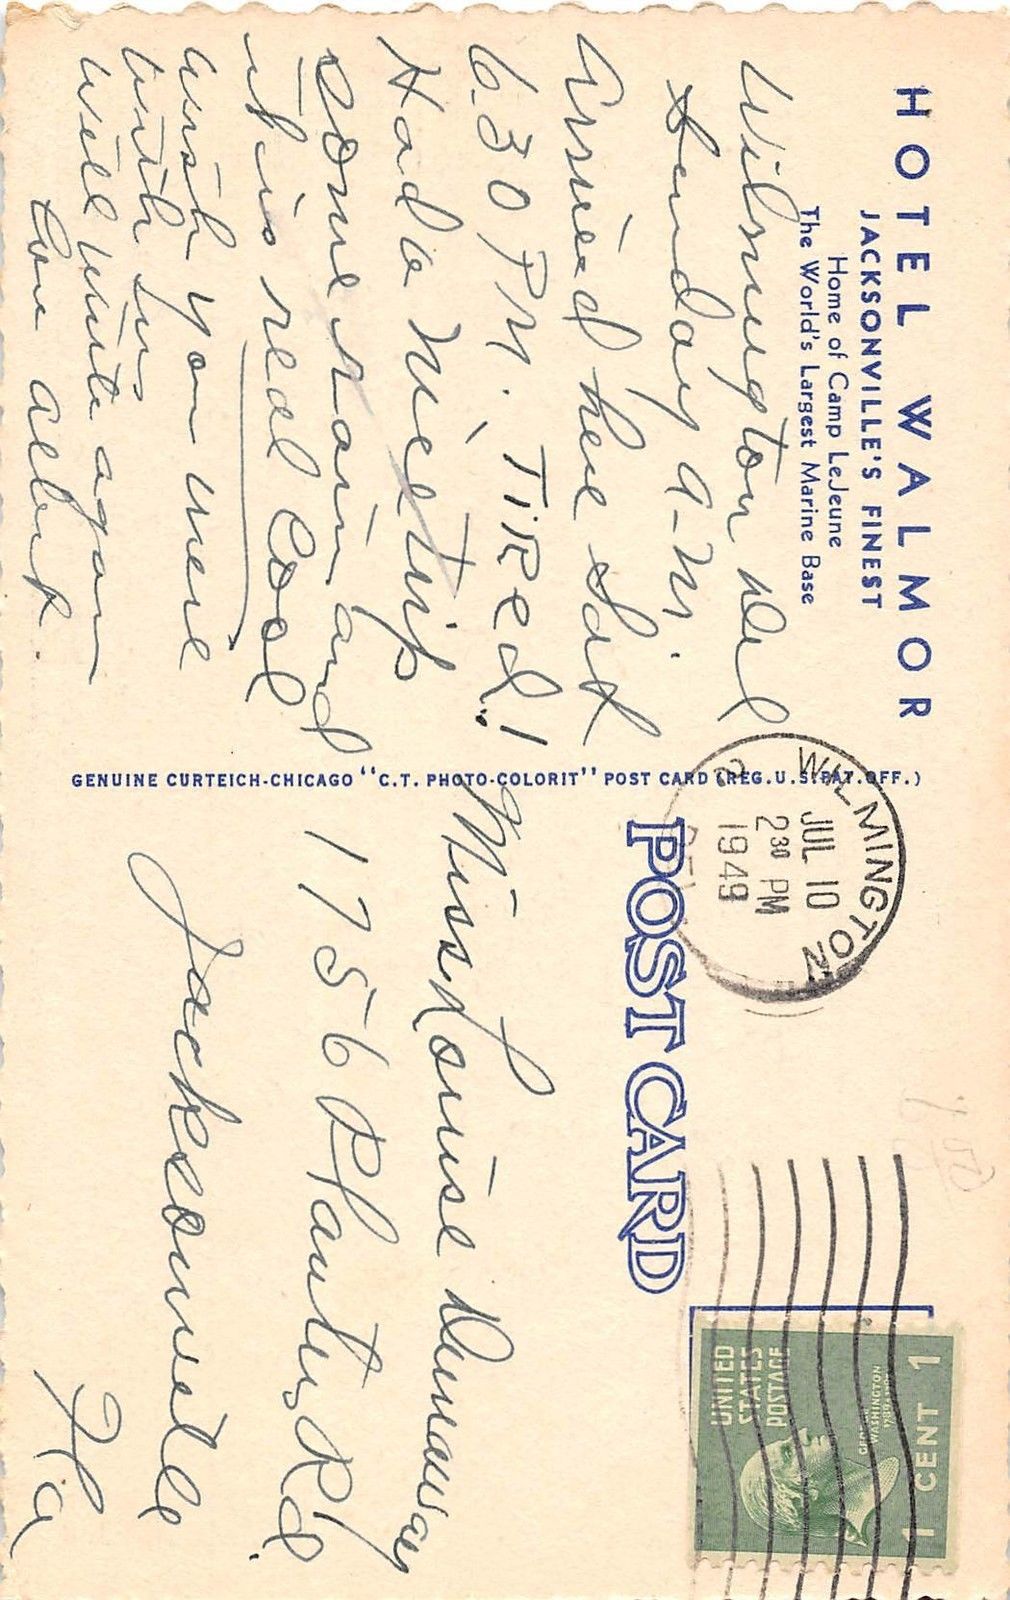 HOTEL WALMOR
JACKSONVILLE'S FINEST
Home of Camp LeJeune
The World's Largest Marine Base
Wilmington Del
Sunday A.M.
Arrived here Sat
6:30 PM. TiRed!
Had a nice trip
some rain and
it is real Cool
wish you were
with us
Will write again
Love
GENUINE CURTEICH-CHICAGO "C.T. PHOTO-COLORIT" POST CARD (REG. U.S. PAT. OFF.)
WILMINGTON
2
JUL 10
2 30 PM
1949
DEL
POST CARD
UNITED
STATES
POSTAGE
GEORGE
WASHINGTON
1789-1797
1 CENT 1
Miss Louise Dunaway
1756 Rd
Jacksonville
Fla